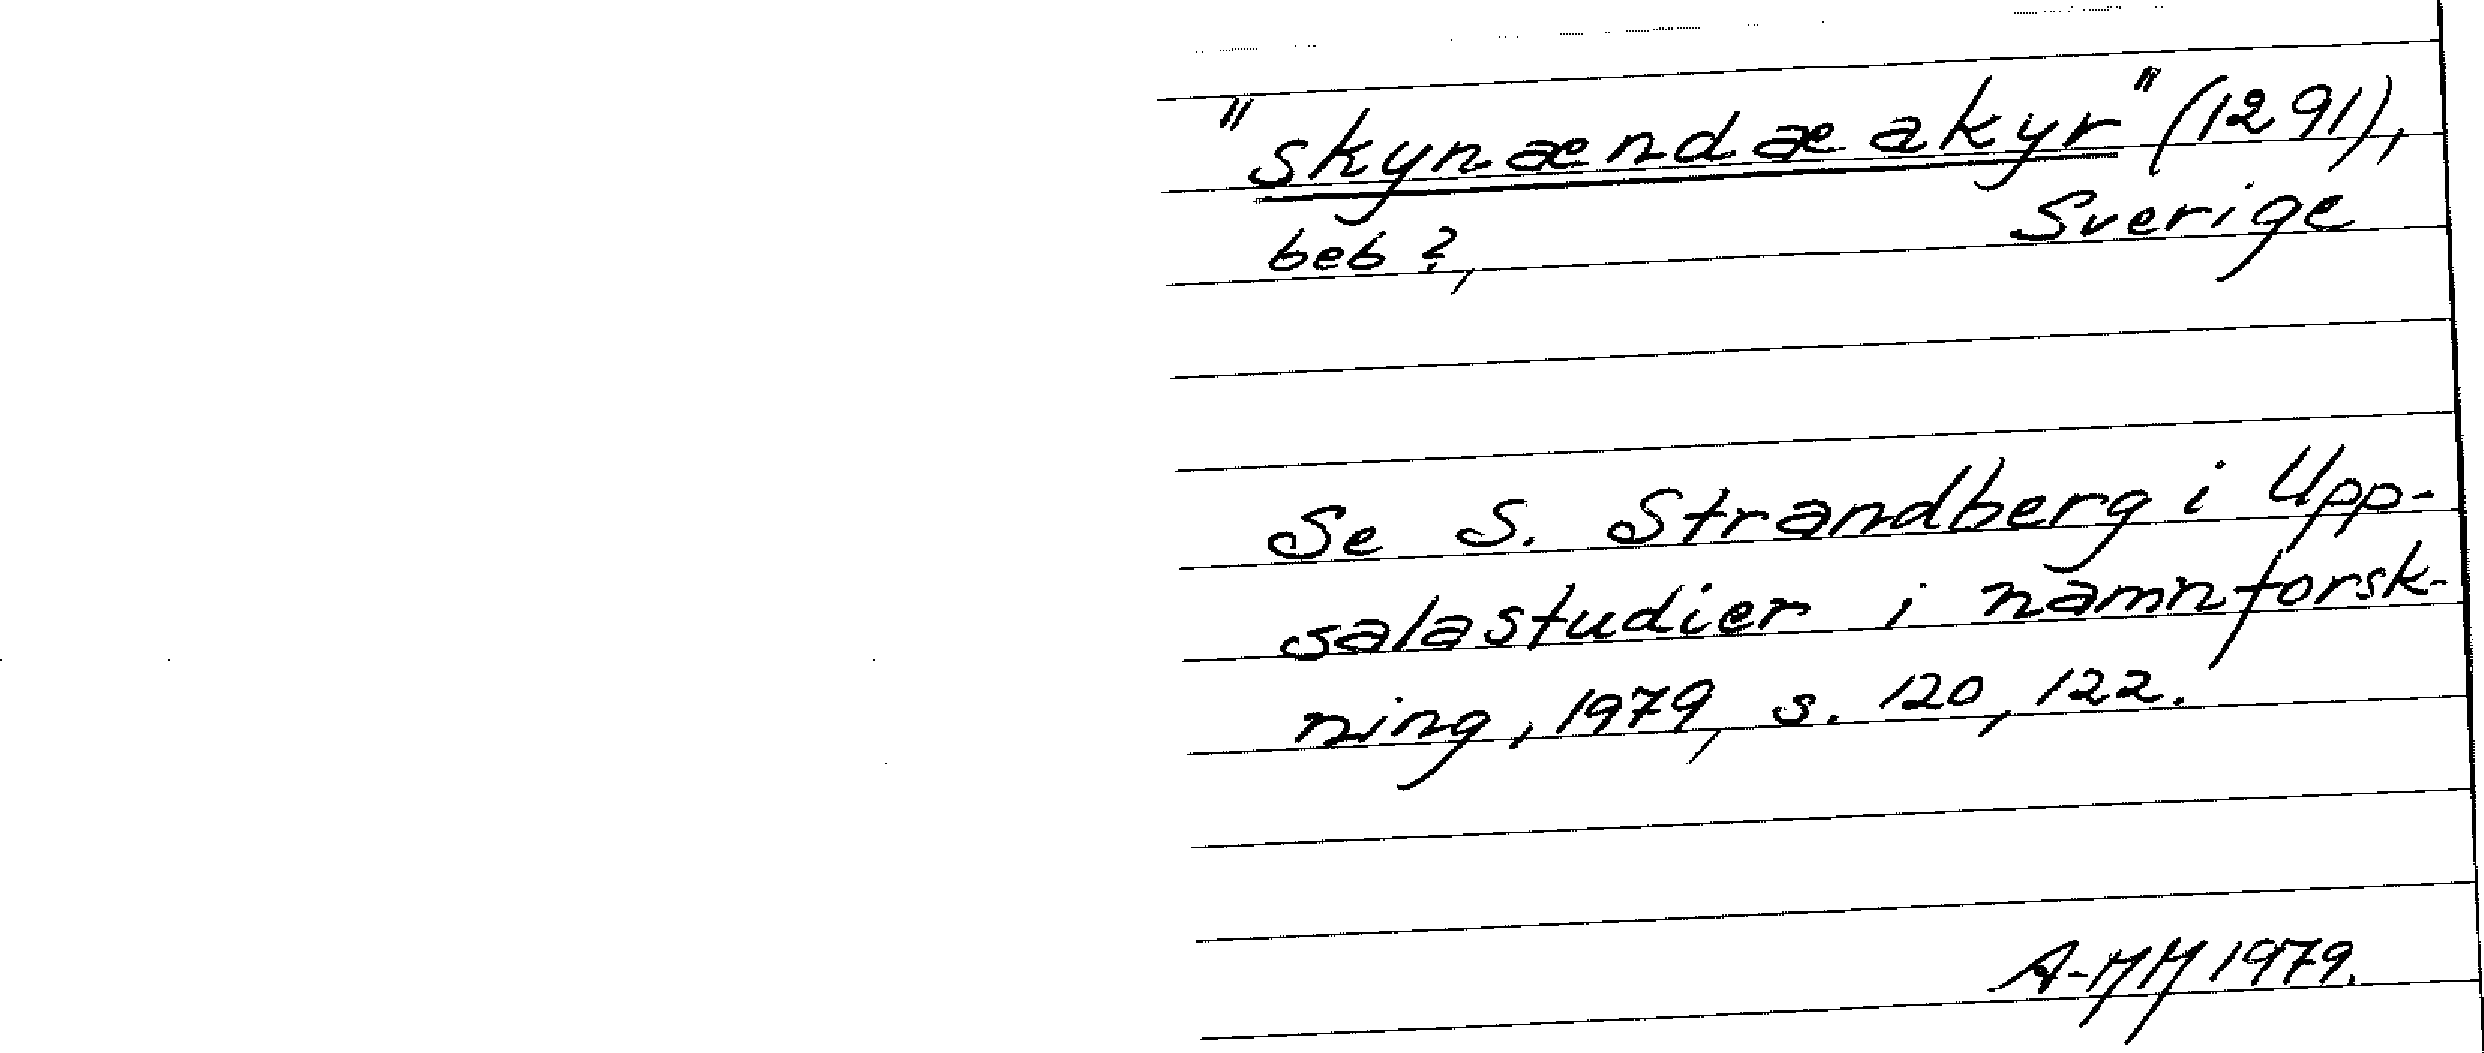 "skynændæakyr" (1291),
Sverige
beb?,
Se S. Strandberg i Upp-
salastudier i namnforsk-
ning, 1979, s. 120, 122.
A-MM 1979.